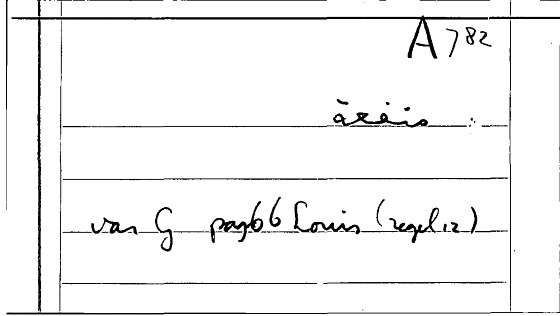 A 782
àrèis
van G pag 66 Louis (regel 12)